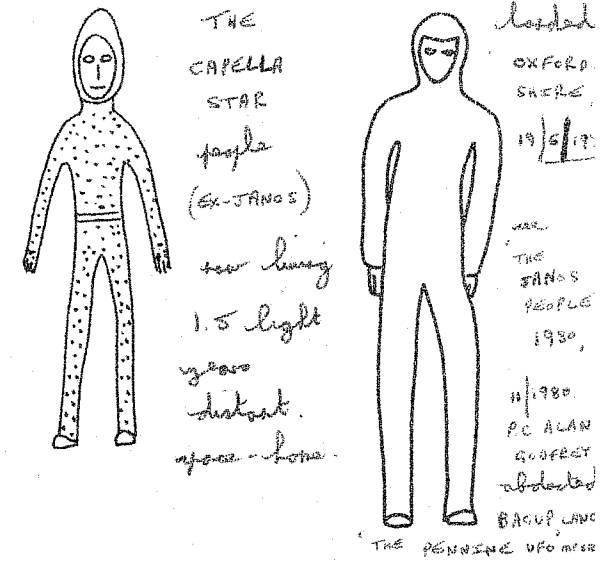 THE
CAPELLA
STAR
people
(EX-JANOS)
now living
1.5 light
years
distant.
space-home.
landed
OXFORD.
SHIRE
19/6/19
THE
JANOS
PEOPLE
1980,
11/1980.
P.C ALAN
GODFREY
abducted
BACUP LANC
'THE PENNINE UFO'